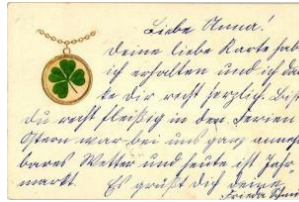 Liebe Anna!
Deine liebe Karte hab
ich erhalten und ich dan
ke Dir recht herzlich. Bist
du recht fleißig in den Ferien
Ostern war bei uns ganz
bares Wetter und heute ist Jahr
markt. Es grüßt Dich deine
Frieda